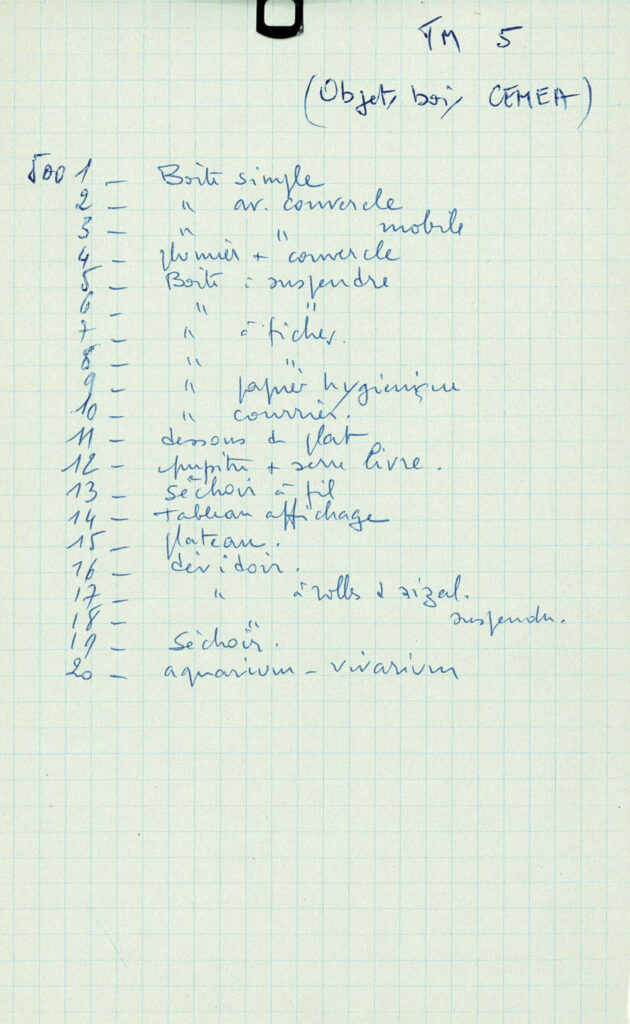 TM 5
(Objets bois CEMEA)
500 1 – Boîte simple
2 – " av. couvercle
3 – " " mobile
4 – plumier + couvercle
5 – Boîte à suspendre
6 – " "
7 – " à fiches.
8 – " "
9 – " papier hygiénique
10 – " courrier.
11 – dessous de plat
12 – pupitre + serre livre.
13 – séchoir à fil
14 – tableau affichage
15 – plateau.
16 – dévidoir.
17 – " à rolls & sizal.
18 – " suspendu.
19 – séchoir.
20 – aquarium – vivarium